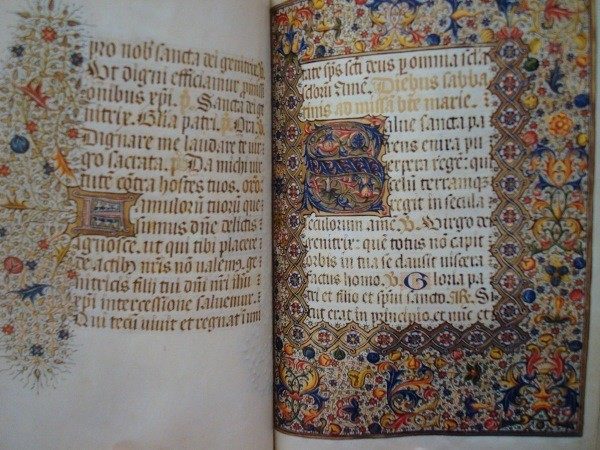 pro nob sancta dei genitrix
Ut digni efficiamur promissi
onibus xpi. p. Sancta dei ge
nitrix. Gl̄ia patri. p. Ora. p.
Dignare me laudare te vir
go sacrata. p. Da michi vir
tute contra hostes tuos. oro
Famulorū tuorū que
sumus dn̄e delictis
ignosce. ut qui tibi placere
de actibꝫ nr̄is nō valemꝰ. ge
nitricis filii tui dn̄i nr̄i ihū
xpi intercessione salvemur.
Qui tecū vivit et regnat in uni
tate sp̄s sc̄ti deus p omnia sc̄la
sclorū amē. Diebus sabba
tinis ad missā bte marie.
Salve sancta pa
rens enixa pu
erpera regē: qui
celum terramqꝫ
regit in secula
seculorum amē. V̄. Virgo dei
genitrix: quē totus nō capit
orbis in tua se clausit viscera
factus homo. V̄. Gloria pa
tri et filio et spūi sancto. Æ. Si
cut erat in principio et nūc et